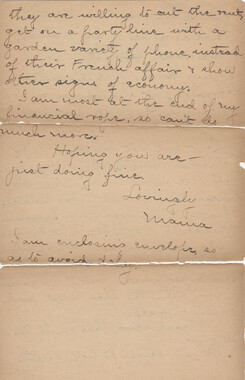 they are willing to cut the rent,
get on a party line with a
garden variety of phone instead
of their French affair & show
other signs of economy.
I am most at the end of my
financial rope, so can't do
much more.
Hoping you are
just doing fine
Lovingly
Mama
I am enclosing envelope, so
as to avoid delay.